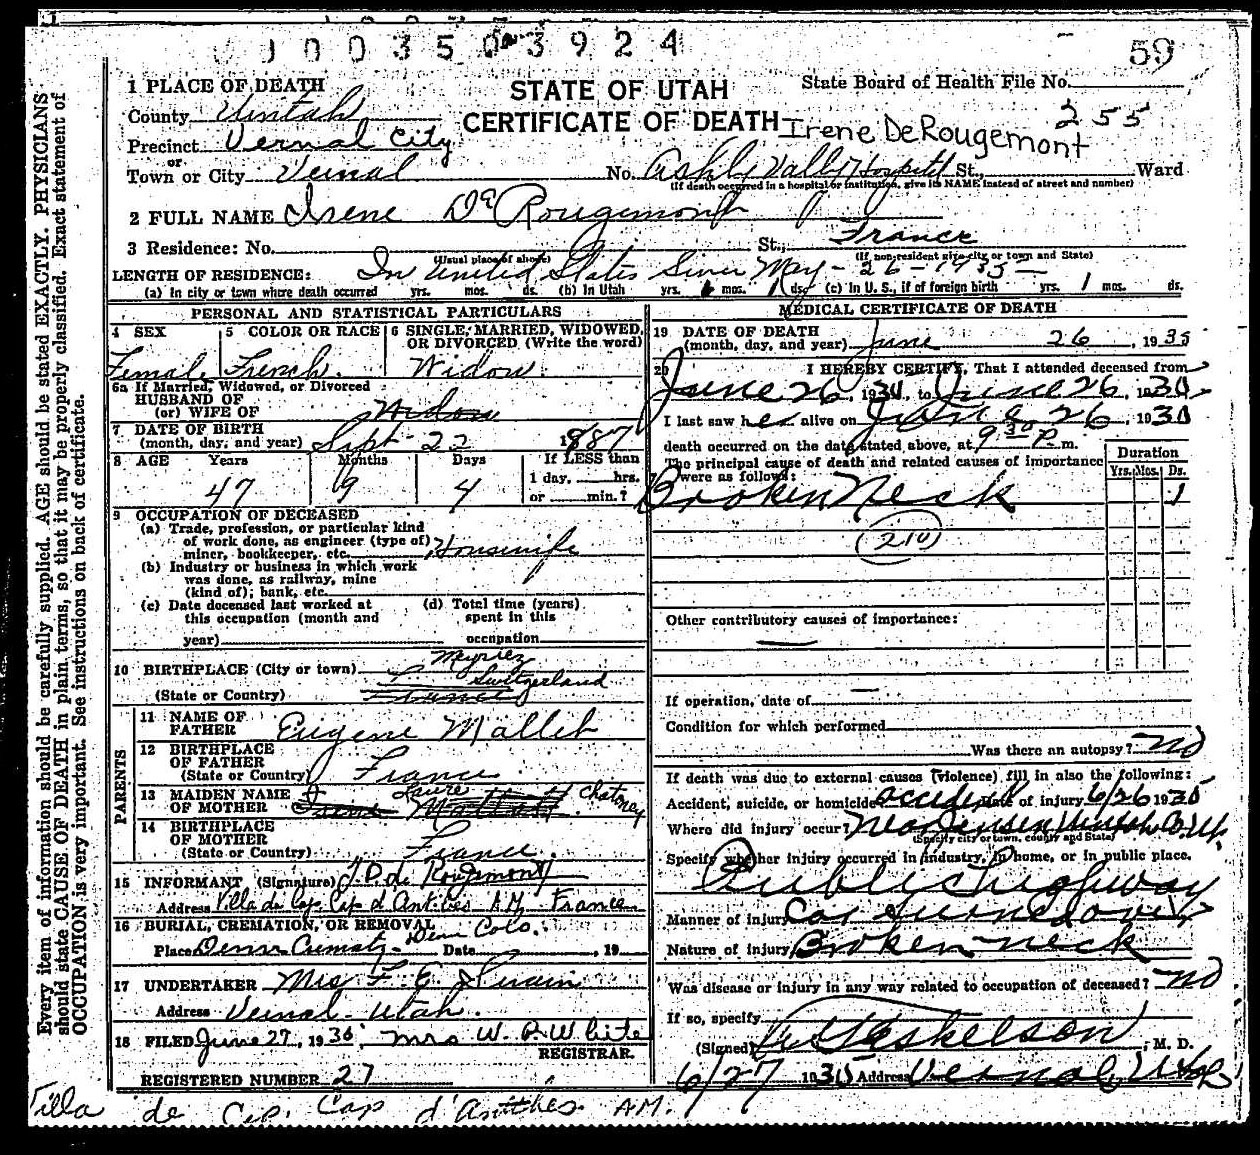 1003503924
59
1 PLACE OF DEATH
STATE OF UTAH
State Board of Health File No.
County Uintah
CERTIFICATE OF DEATH
255
Irene DeRougemont
Precinct Vernal City
or
Town or City Vernal No. Ashly Vally Hospital St., Ward
(If death occurred in a hospital or institution, give its NAME instead of street and number)
2 FULL NAME Irene De Rougemont
3 Residence: No. St., France
(Usual place of abode) (If non-resident give city or town and State)
LENGTH OF RESIDENCE: In United States Since May - 26 - 1935
(a) In city or town where death occurred yrs. mos. ds. (b) In Utah yrs. mos. 1 ds. (c) In U. S., if of foreign birth yrs. 1 mos. ds.
PERSONAL AND STATISTICAL PARTICULARS
4 SEX Female
5 COLOR OR RACE French.
6 SINGLE, MARRIED, WIDOWED, OR DIVORCED (Write the word) Widow
6a If Married, Widowed, or Divorced
HUSBAND OF
(or) WIFE OF Widow
7 DATE OF BIRTH
(month, day, and year) Sept - 22 1887
8 AGE Years Months Days If LESS than
47 9 4 1 day, hrs.
or min.?
9 OCCUPATION OF DECEASED
(a) Trade, profession, or particular kind
of work done, as engineer (type of)
miner, bookkeeper, etc. Housewife
(b) Industry or business in which work
was done, as railway, mine
(kind of); bank, etc.
(c) Date deceased last worked at
this occupation (month and
year)
(d) Total time (years)
spent in this
occupation
10 BIRTHPLACE (City or town) Meyriez
Switzerland
(State or Country) France
PARENTS
11 NAME OF
FATHER Eugene Mallet
12 BIRTHPLACE
OF FATHER
(State or Country) France
13 MAIDEN NAME
OF MOTHER Irene Laure Chatenay
14 BIRTHPLACE
OF MOTHER
(State or Country) France.
15 INFORMANT (Signature) J. P. de Rougemont
Address Villa du Cap. Cap d'Antibes A.M. France
16 BURIAL, CREMATION, OR REMOVAL
Place Date , 19
17 UNDERTAKER Mrs F. E. Swain
Address Vernal - Utah.
18 FILED June 27, 1935, Mrs W. P. White
REGISTRAR.
REGISTERED NUMBER 27
MEDICAL CERTIFICATE OF DEATH
19 DATE OF DEATH
(month, day, and year) June 26, 1935
20 I HEREBY CERTIFY, That I attended deceased from
June 26, 1930, to June 26, 1930
I last saw her alive on June 26, 1930
death occurred on the date stated above, at 9 30 P. m.
The principal cause of death and related causes of importance
were as follows:
Duration
Yrs. Mos. Ds.
Broken Neck 1
(210)
Other contributory causes of importance:
If operation, date of
Condition for which performed
Was there an autopsy? no
If death was due to external causes (violence) fill in also the following:
Accident, suicide, or homicide accident Date of injury 6/26 1935
Where did injury occur? Near Jensen
(Specify city or town, county and State)
Specify whether injury occurred in industry, in home, or in public place.
Public highway
Manner of injury Car turned over
Nature of injury Broken neck
Was disease or injury in any way related to occupation of deceased? no
If so, specify
(Signed) Eskelson, M. D.
6/27 1935 Address Vernal, Utah
Villa de Cap. Cap d'Antibes A.M.
Every item of information should be carefully supplied. AGE should be stated EXACTLY. PHYSICIANS
should state CAUSE OF DEATH in plain terms, so that it may be properly classified. Exact statement of
OCCUPATION is very important. See instructions on back of certificate.